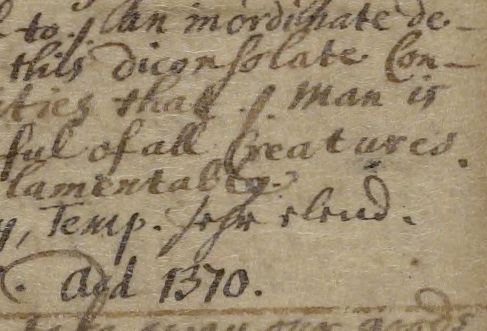 to. an inordinate de-
this diconsolate Con-
ties that man is
ful of all Creatures.
lamentably.
Temp. sehr elend.
Add 1370.